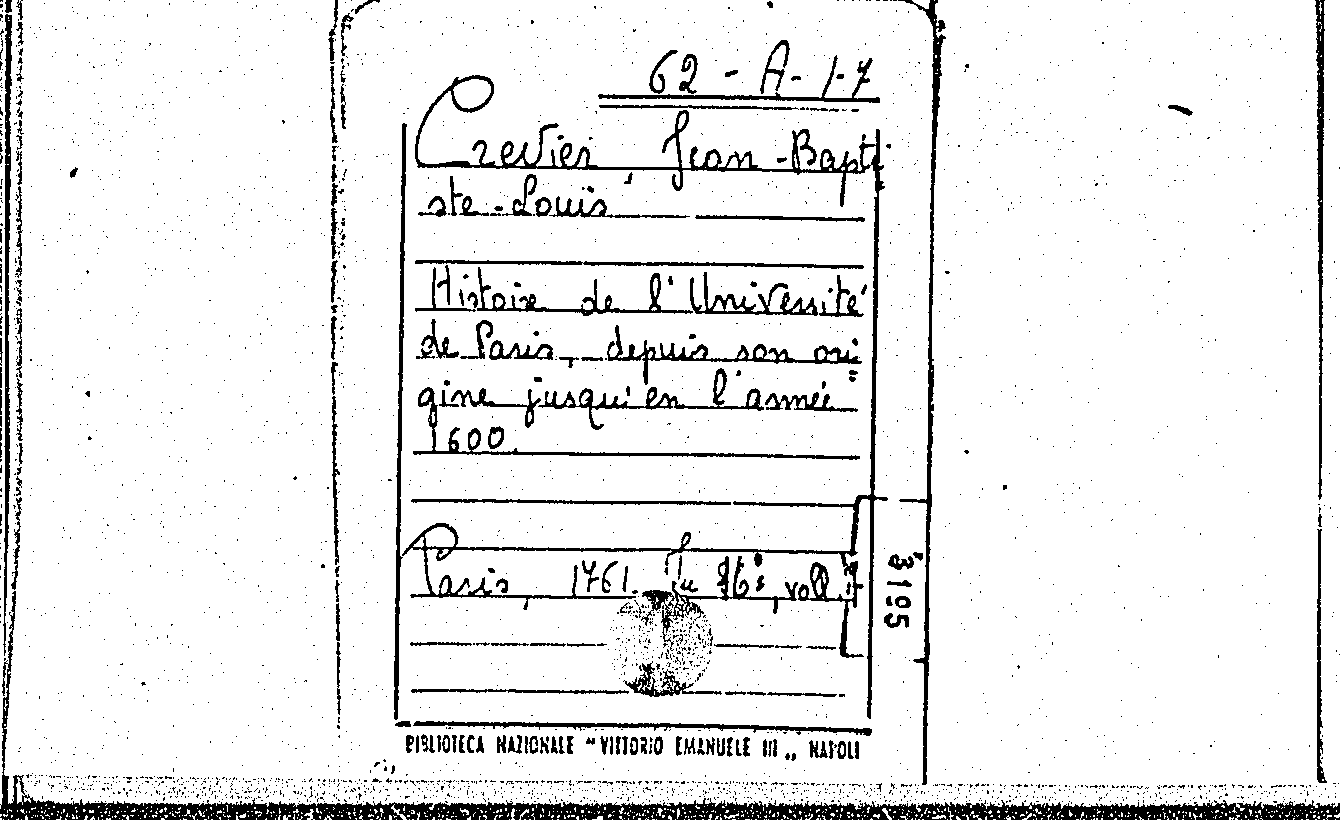 62 - A - 1-7
Crevier, Jean-Bapti
ste-Louis
Histoire de l'Université
de Paris, depuis son ori
gine jusqu'en l'année
1600.
Paris, 1761. In 16°, voll.
3105
BIBLIOTECA NAZIONALE "VITTORIO EMANUELE III„ NAPOLI